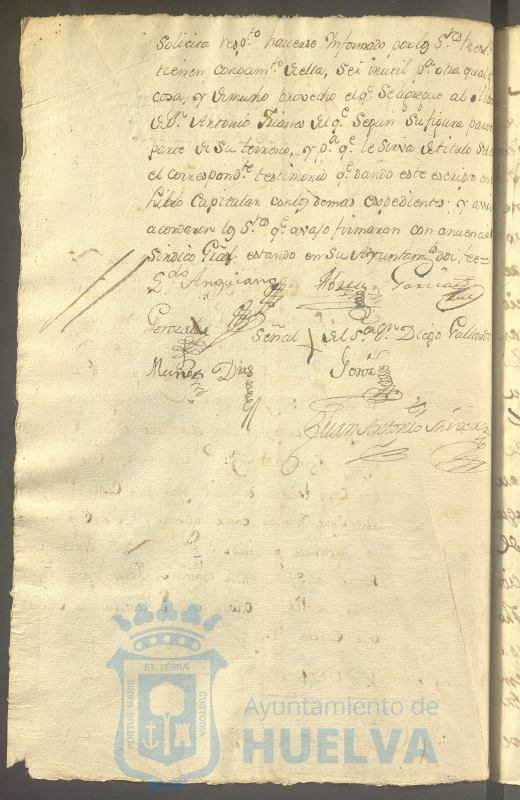 Solicita resp.to hauerse Informado por los S.res
tienen conocim.to de ella, ser inutil p.a otra qual
cosa, y de mucho provecho el q.e se agregue al
de D.n Antonio el q.e Segun Su figura parece
parte de Su terreno, y p.a q.e le sirva de titulo se le
el correspond.te testimonio q.dando este escripto en
Libro Capitular con los demas expedientes: y
acordaron los S.res q.e avajo firmaran con anuencia
Sindico Gral, estando en Su Ayuntam.to doi fee=
Anguiano Garcia
Gonzalez Señal del S.r Diego Gallardo
Muñoz Dias
Juan Antonio
PORTUS MARIS ET TERRÆ CUSTODIA
Ayuntamiento de
HUELVA